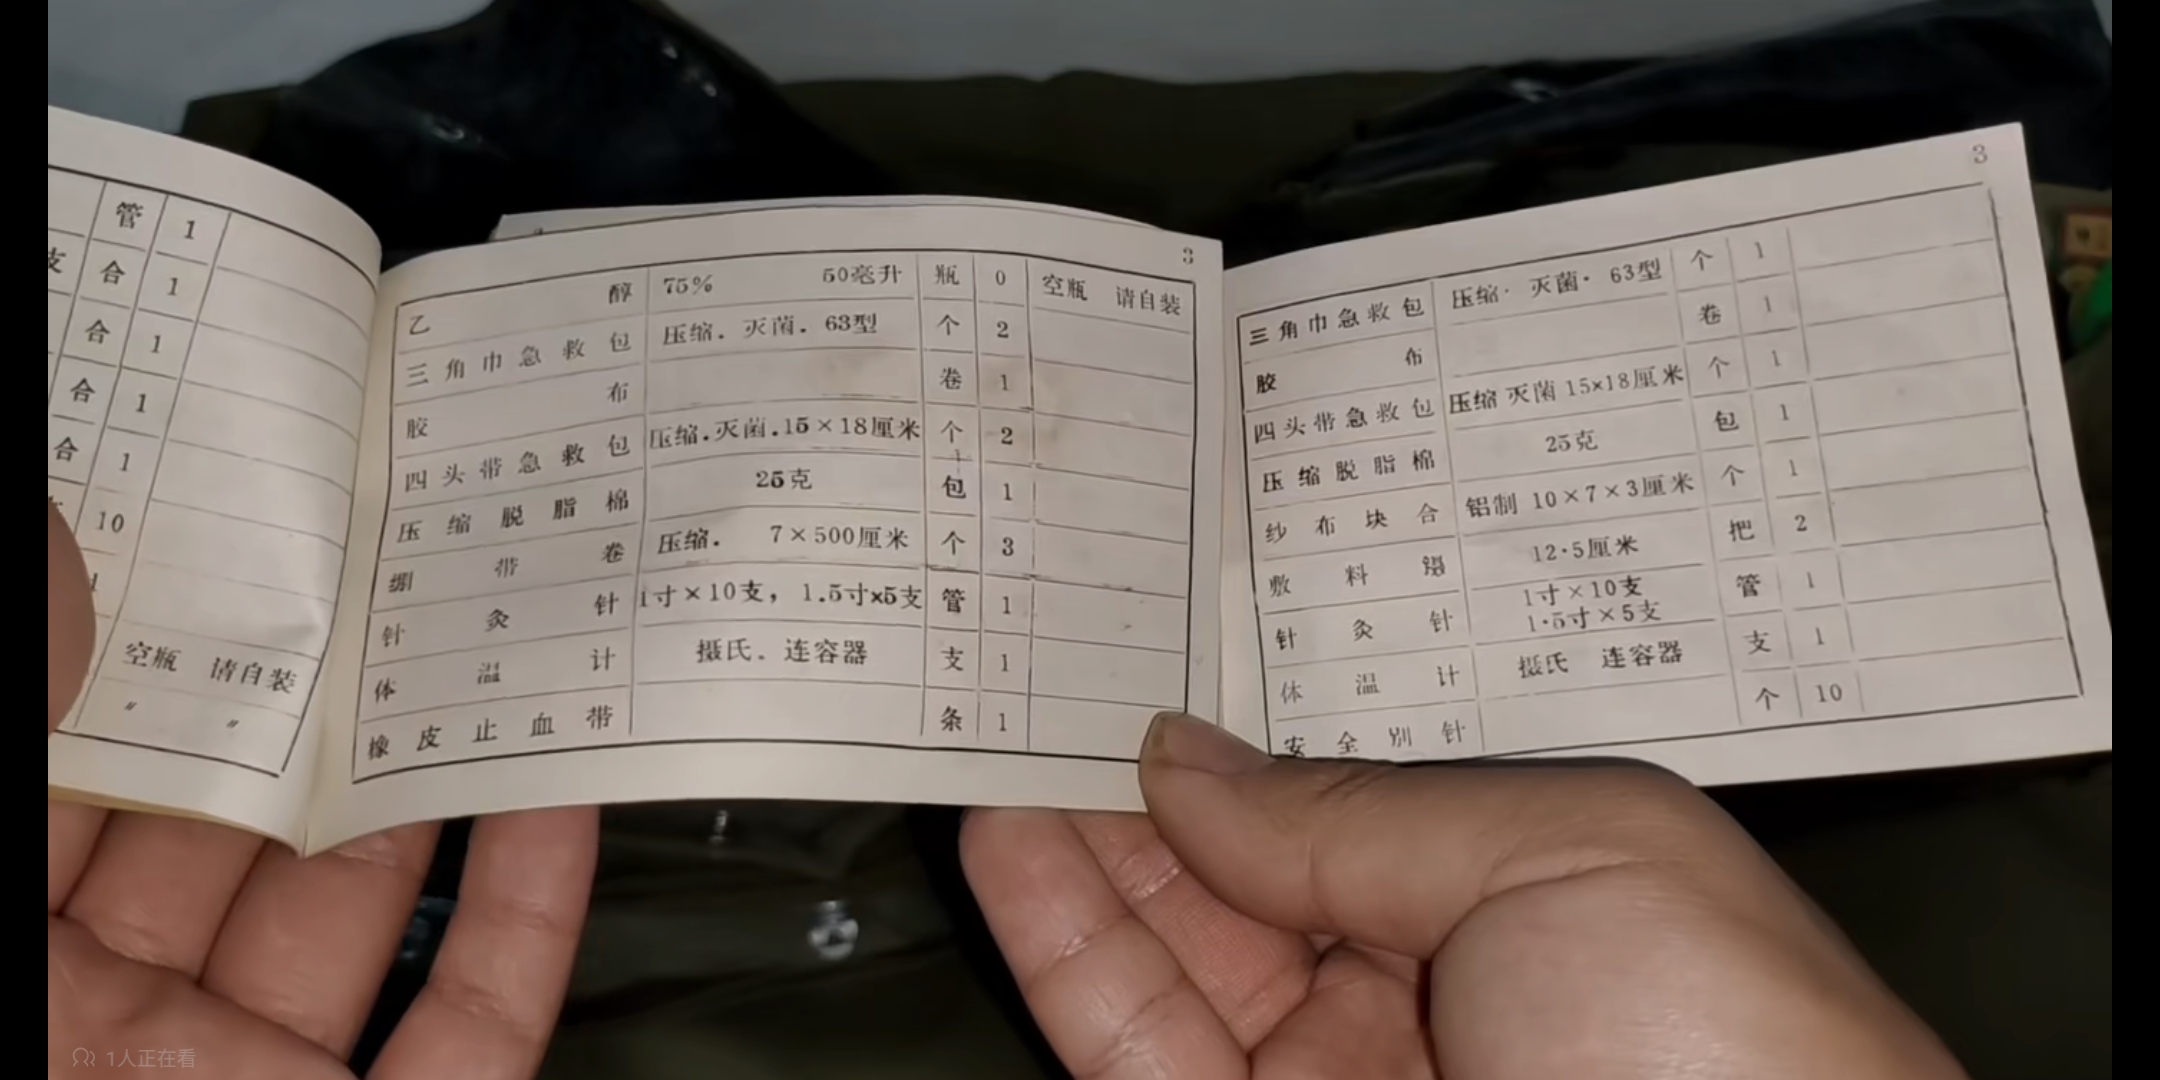 管 1
支 合 1
合 1
合 1
合 1
10
空瓶 请自装
〃 〃
3
乙醇 75% 50毫升 瓶 0 空瓶 请自装
三角巾急救包 压缩．灭菌．63型 个 2
胶布 卷 1
四头带急救包 压缩．灭菌．15×18厘米 个 2
压缩脱脂棉 25克 包 1
绷带卷 压缩． 7×500厘米 个 3
针灸针 1寸×10支，1.5寸×5支 管 1
体温计 摄氏．连容器 支 1
橡皮止血带 条 1
3
三角巾急救包 压缩·灭菌·63型 个 1
胶布 卷 1
四头带急救包 压缩 灭菌 15×18厘米 个 1
压缩脱脂棉 25克 包 1
纱布块合 铝制 10×7×3厘米 个 1
敷料镊 12·5厘米 把 2
针灸针 1寸×10支 管 1
1·5寸×5支
体温计 摄氏 连容器 支 1
安全别针 个 10
1人正在看